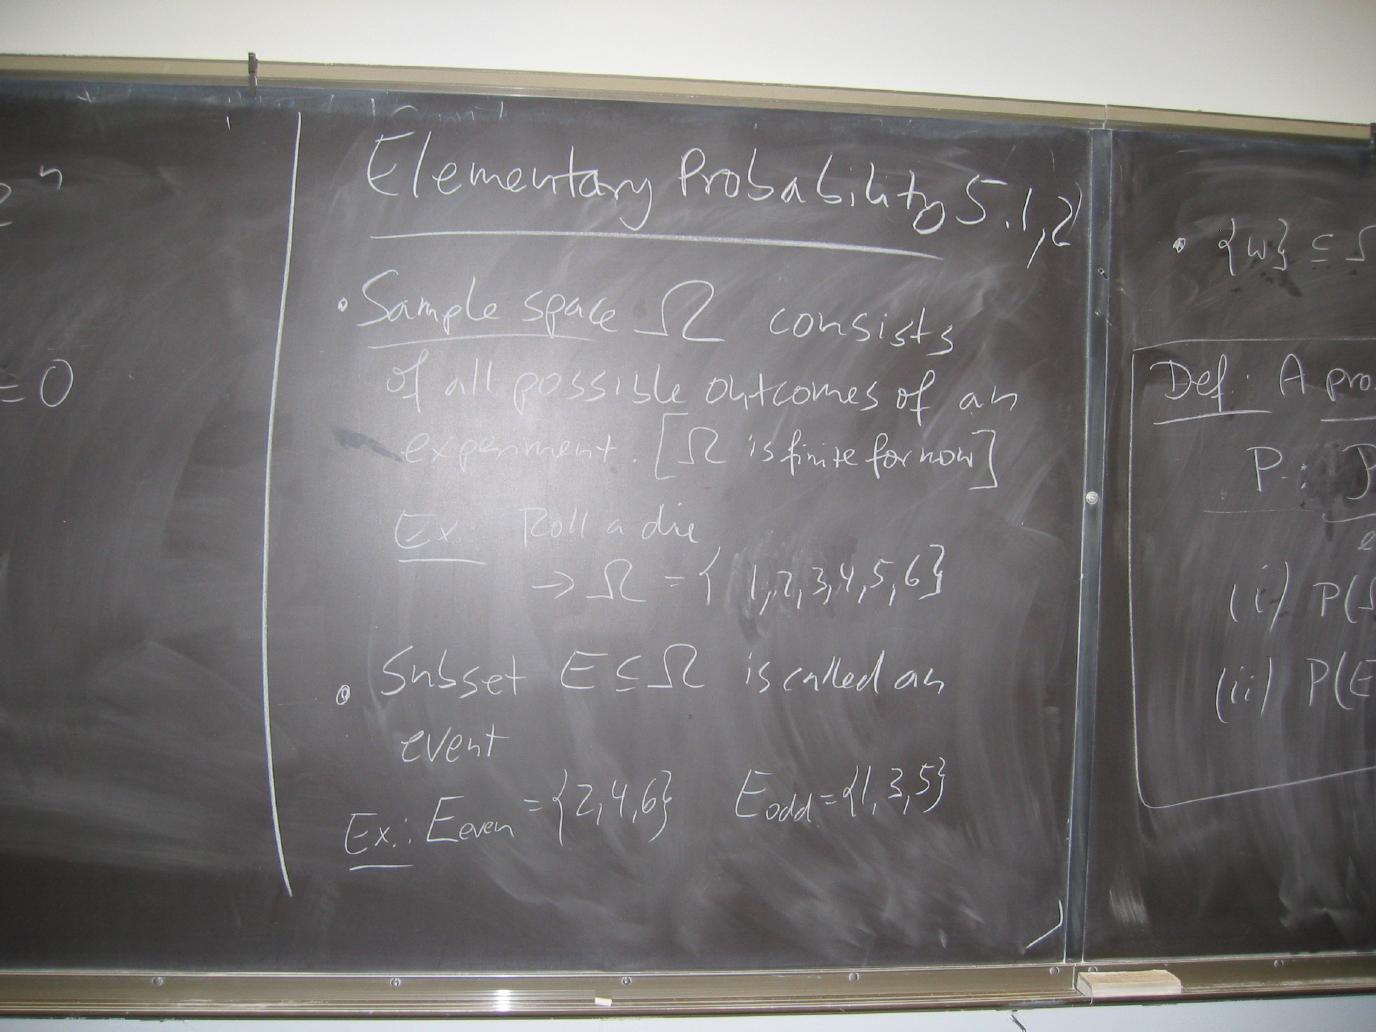 2^n
= 0
Elementary Probability 5.1,2
• Sample space Ω consists
of all possible outcomes of an
experiment. [Ω is finite for now]
Ex: Roll a die
→ Ω = { 1,2,3,4,5,6}
• Subset E ⊆ Ω is called an
event
Ex.: E_even = {2,4,6} E_odd = {1,3,5}
• {w} ⊆ Ω
Def: A
P:
(i) P(Ω
(ii) P(E